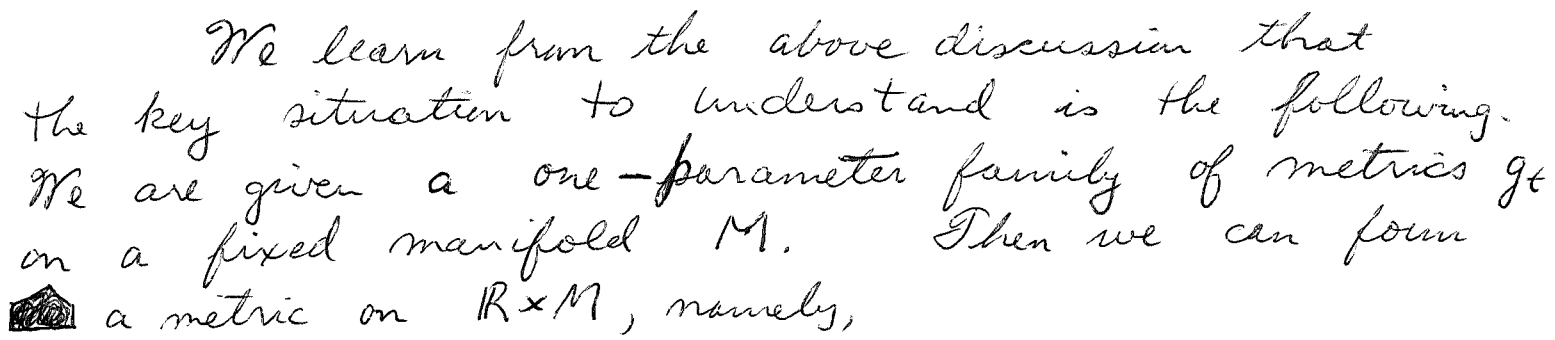 We learn from the above discussion that
the key situation to understand is the following.
We are given a one-parameter family of metrics g_t
on a fixed manifold M. Then we can form
a metric on ℝ×M, namely,